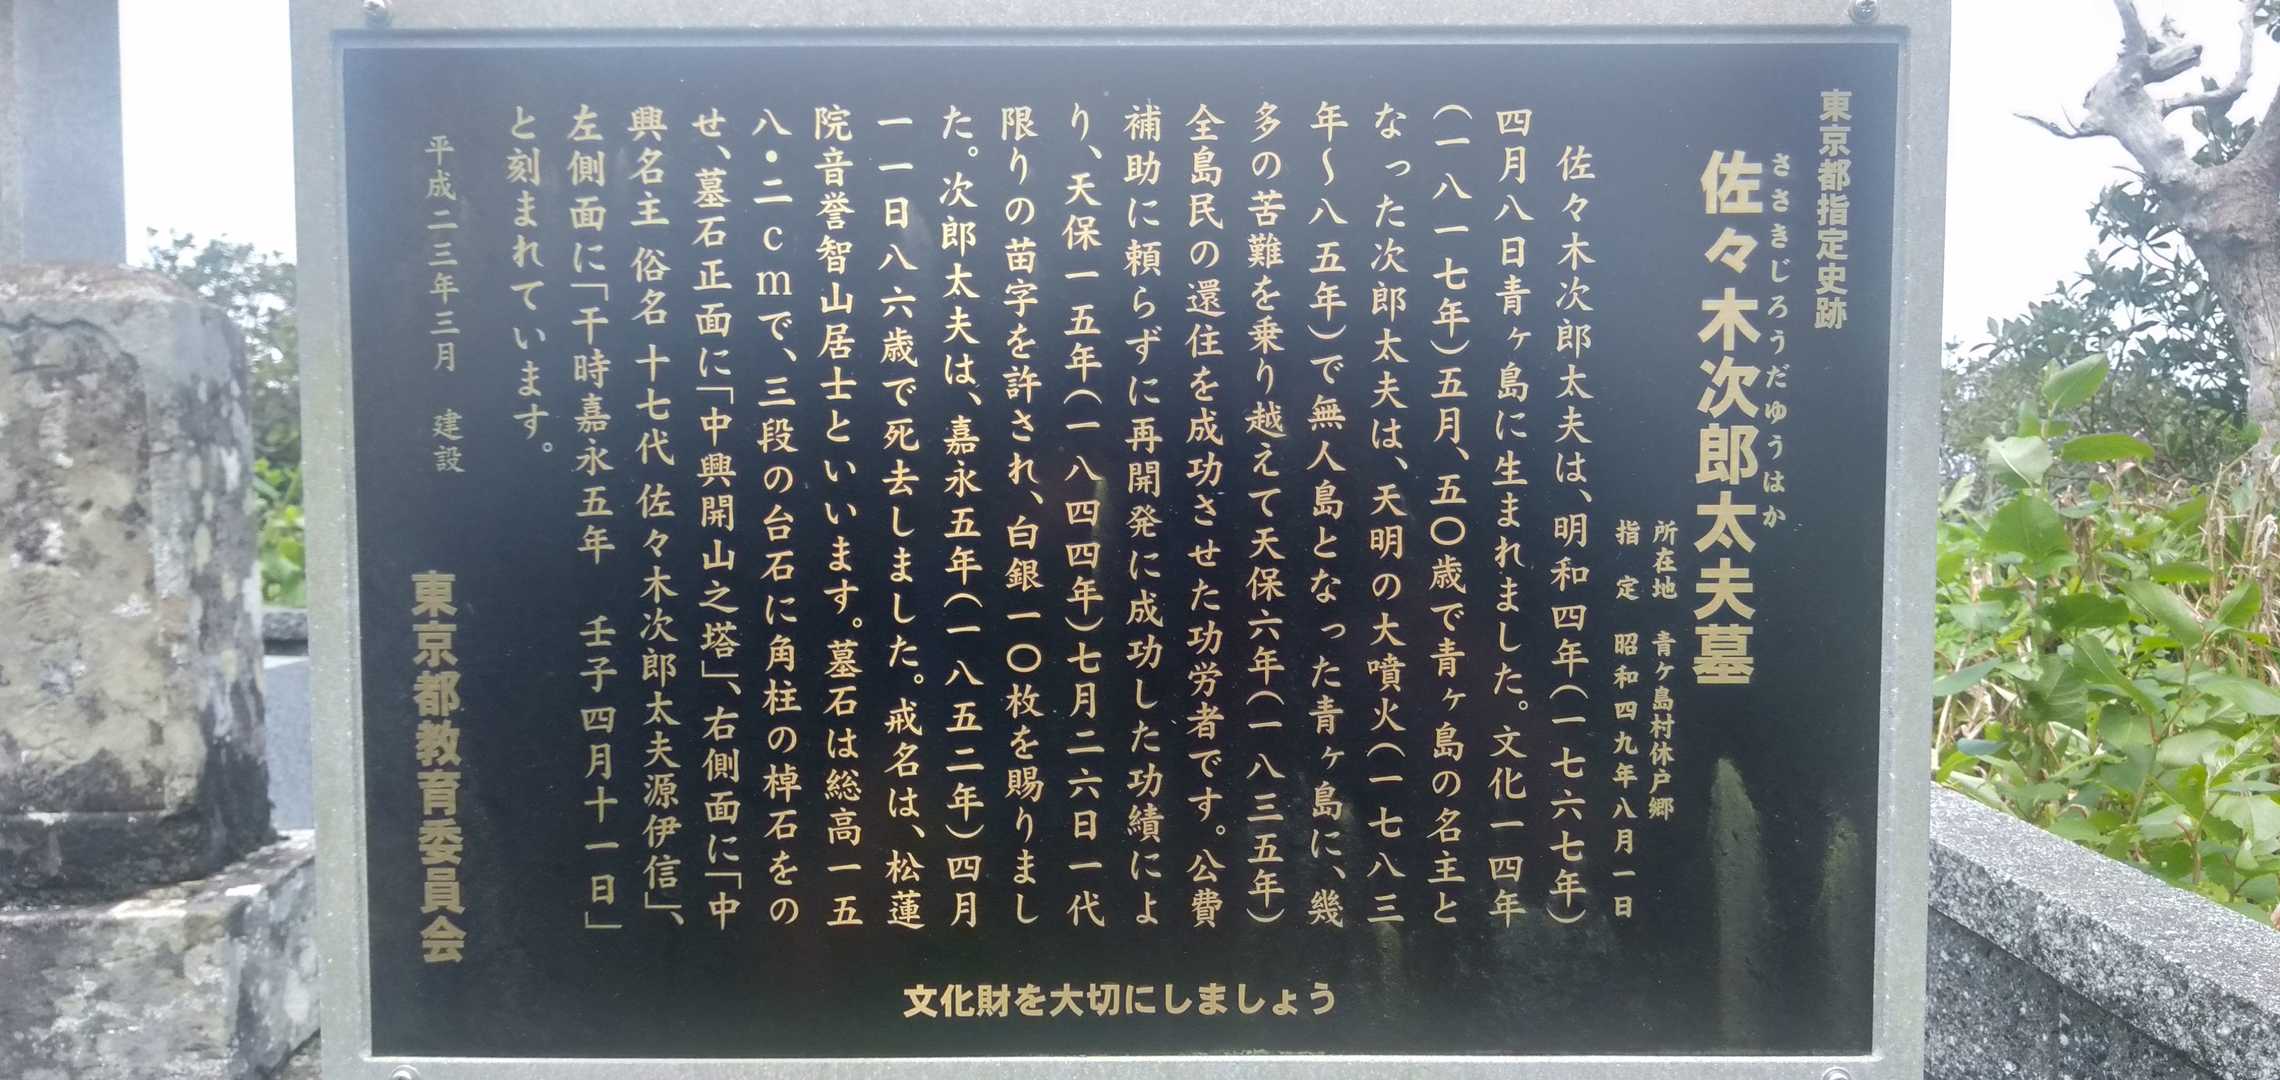 東京都指定史跡
ささきじろうだゆうはか
佐々木次郎太夫墓
所在地 青ヶ島村休戸郷
指定 昭和四九年八月一日
佐々木次郎太夫は、明和四年(一七六七年)
四月八日青ヶ島に生まれました。文化一四年
(一八一七年)五月、五〇歳で青ヶ島の名主と
なった次郎太夫は、天明の大噴火(一七八三
年～八五年)で無人島となった青ヶ島に、幾
多の苦難を乗り越えて天保六年(一八三五年)
全島民の還住を成功させた功労者です。公費
補助に頼らずに再開発に成功した功績によ
り、天保一五年(一八四四年)七月二六日一代
限りの苗字を許され、白銀一〇枚を賜りまし
た。次郎太夫は、嘉永五年(一八五二年)四月
一一日八六歳で死去しました。戒名は、松蓮
院音誉智山居士といいます。墓石は総高一五
八・二cmで、三段の台石に角柱の棹石をの
せ、墓石正面に「中興開山之塔」、右側面に「中
興名主 俗名 十七代 佐々木次郎太夫源伊信」、
左側面に「干時嘉永五年 壬子四月十一日」
と刻まれています。
平成二三年三月 建設
東京都教育委員会
文化財を大切にしましょう